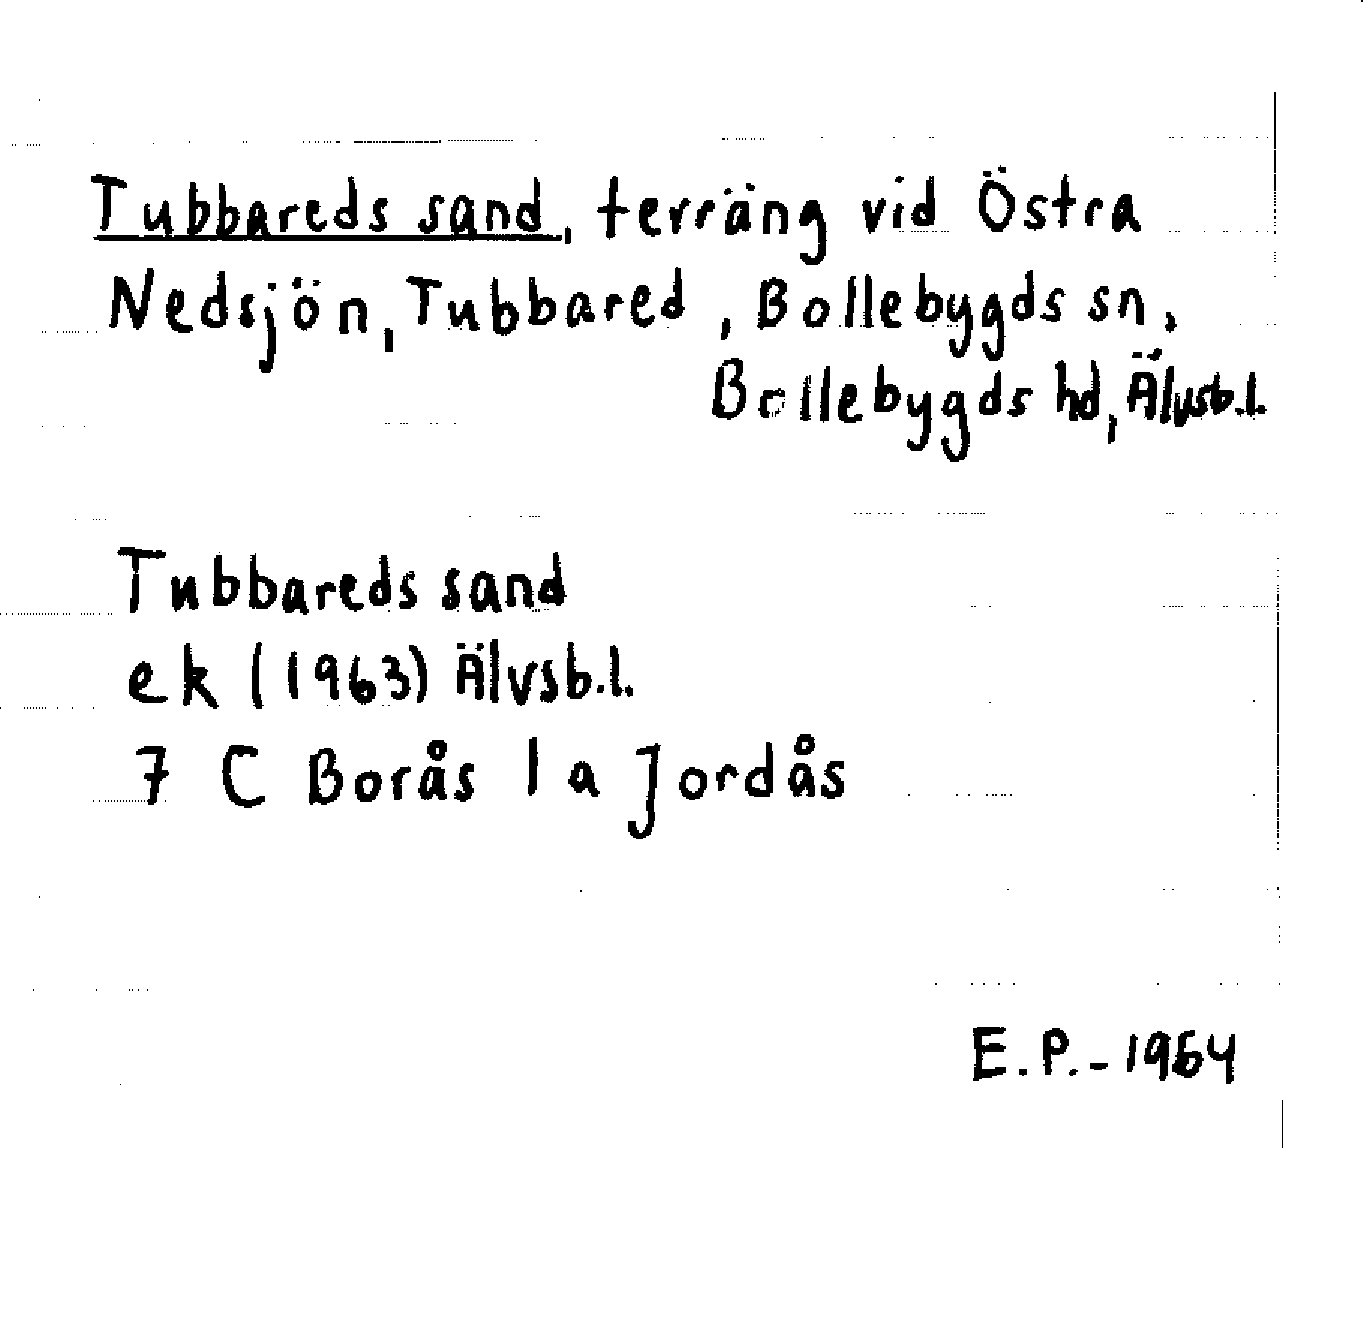 Tubbareds sand, terräng vid Östra
Nedsjön, Tubbared, Bollebygds sn,
Bollebygds hd, Älvsb.l.
Tubbareds sand
ek (1963) Älvsb.l.
7 C Borås 1 a Jordås
E.P.-1964